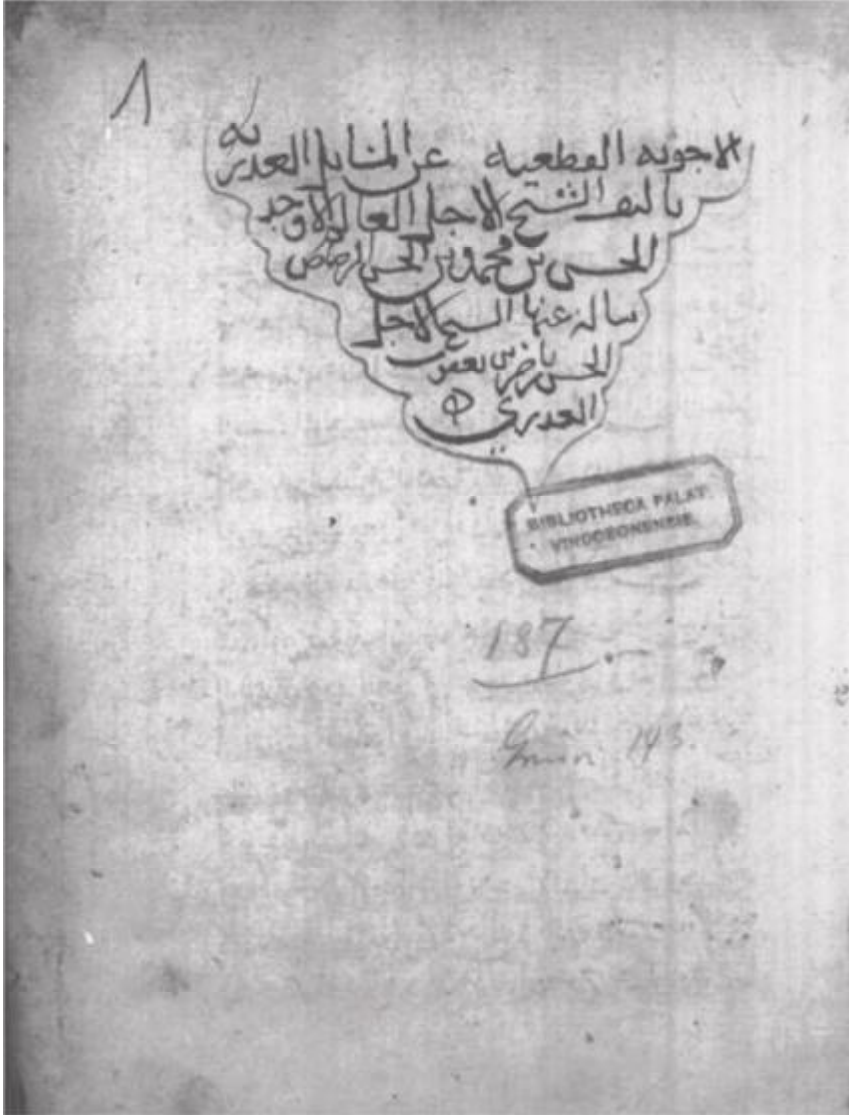 ٨
الاجوبه القطعيه عن المسايل العدريه
تاليف الشيخ الاجل العالم الاوحد
الحسن بن محمد بن الحسن الرصاص
ساله عنها الشيخ الاجل
الحسن بن
العدري
BIBLIOTHECA PALAT.
VINDOBONENSIS.
187
Glaser 143.